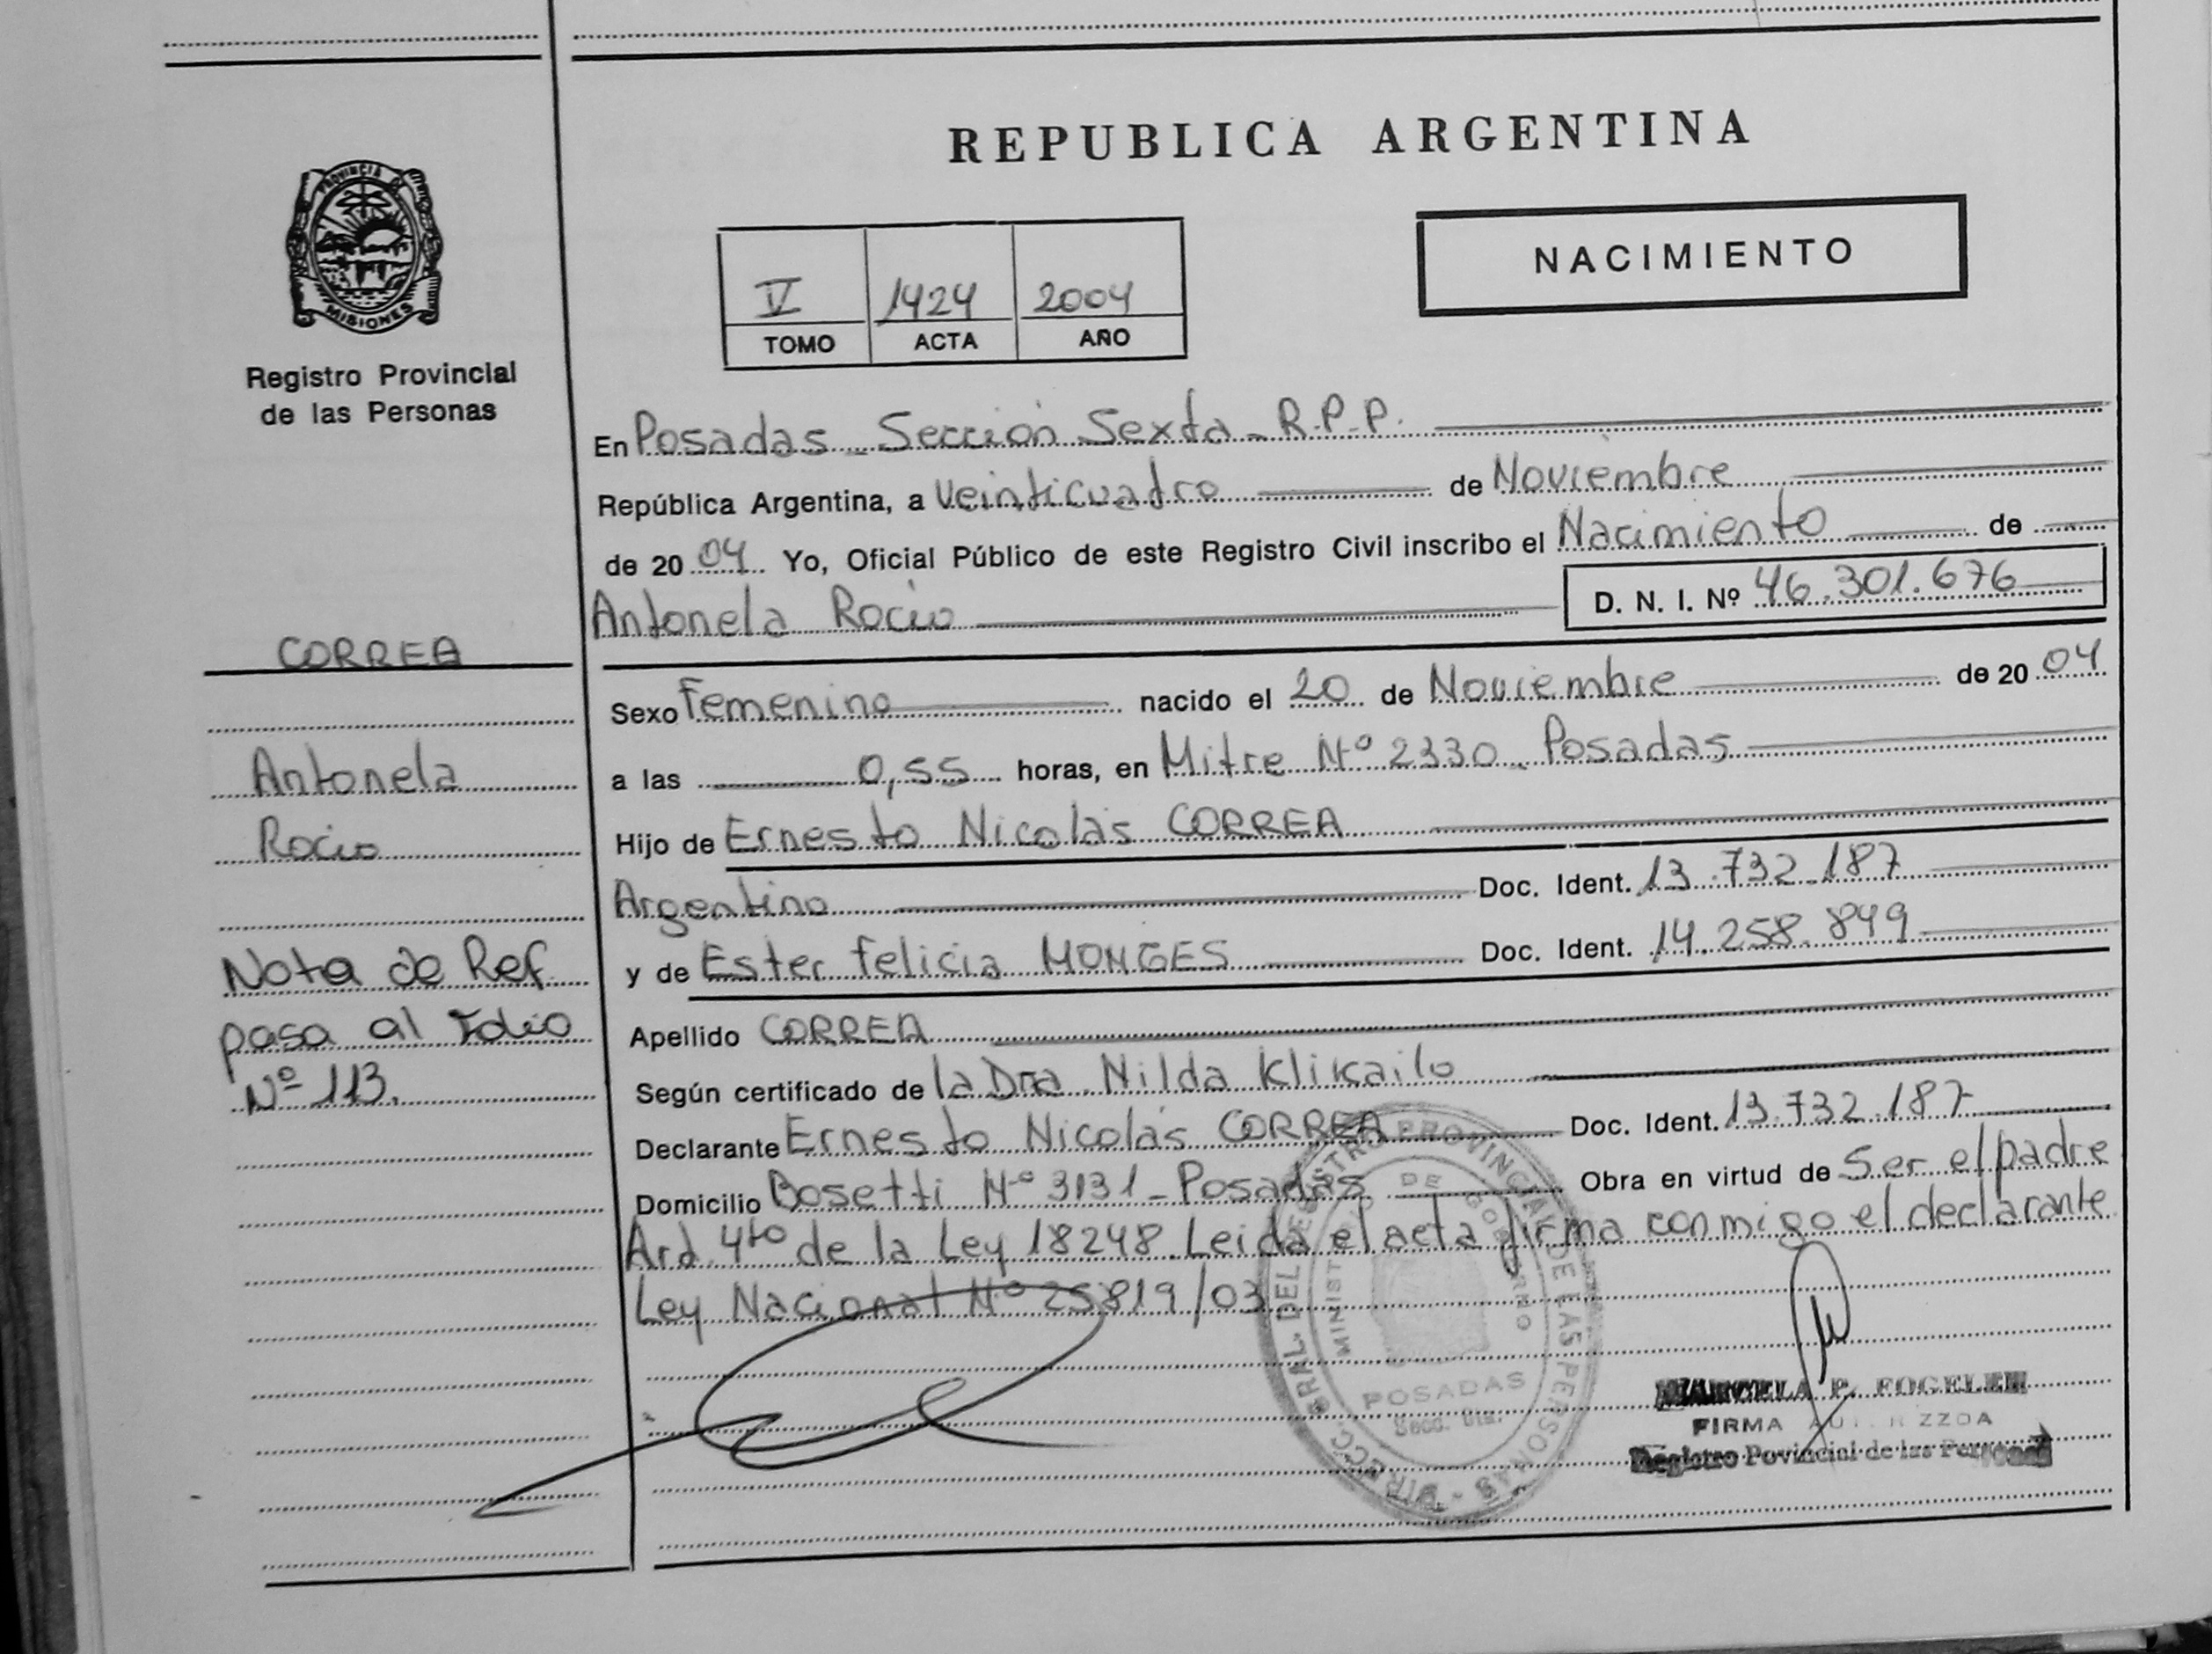 REPUBLICA ARGENTINA
NACIMIENTO
V 1424 2004
TOMO ACTA AÑO
PROVINCIA DE
MISIONES
Registro Provincial
de las Personas
CORREA
Antonela
Rocio
Nota de Ref.
pasa al Folio
Nº 113.
En Posadas - Sección Sexta - R.P.P.
República Argentina, a Veinticuatro de Noviembre
de 2004 Yo, Oficial Público de este Registro Civil inscribo el Nacimiento de
Antonela Rocio D. N. I. Nº 46.301.676
Sexo Femenino nacido el 20 de Noviembre de 2004
a las 0,55 horas, en Mitre Nº 2330 - Posadas
Hijo de Ernesto Nicolás CORREA
Argentino Doc. Ident. 13.732.187
y de Ester Felicia MONGES Doc. Ident. 14.258.849
Apellido CORREA
Según certificado de la Dra. Nilda Klikailo
Declarante Ernesto Nicolás CORREA Doc. Ident. 13.732.187
Domicilio Bosetti Nº 3131 - Posadas Obra en virtud de Ser el padre
Ard. 4to de la Ley 18248. Leida el acta firma conmigo el declarante
Ley Nacional Nº 25819/03
DIRECC. GRAL. DEL REGISTRO PROVINCIAL DE LAS PERSONAS
MINISTERIO DE GOBIERNO
POSADAS
Secc. 6ta.
P. FOGELER
FIRMA
Registro Provincial de las Personas